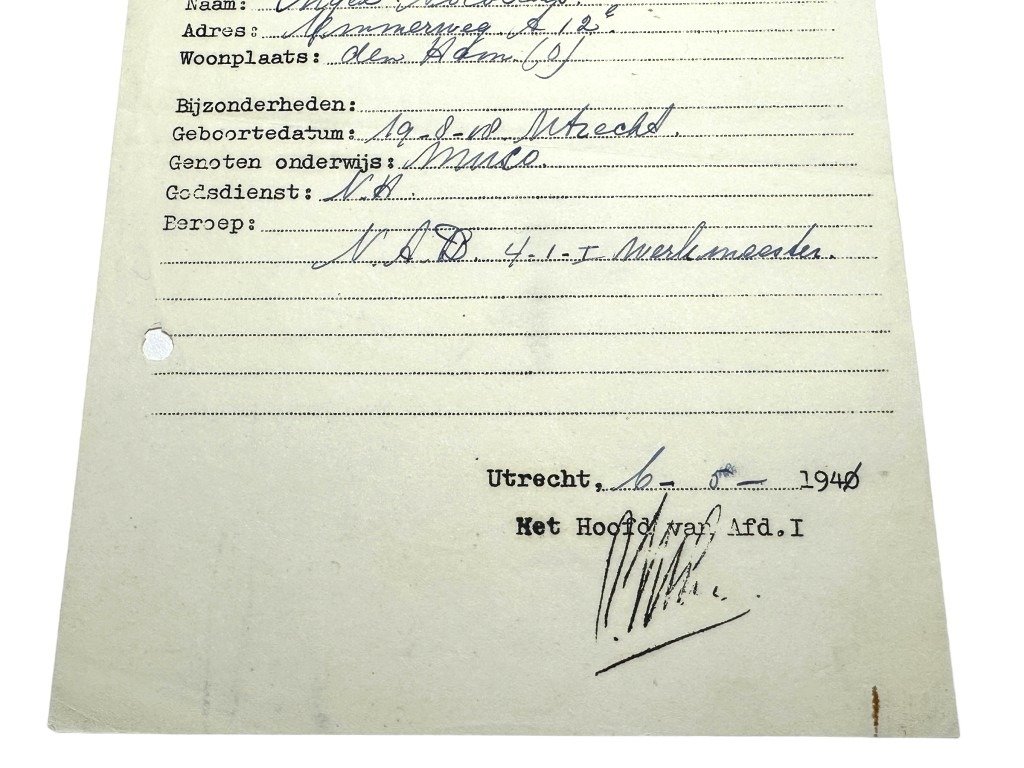 Naam:
Adres: A 12ᵉ.
Woonplaats: den Ham (O)
Bijzonderheden:
Geboortedatum: 19-8-08 Utrecht.
Genoten onderwijs: Mulo.
Godsdienst: N.H.
Beroep:
N.A.D. 4-1-I Werkmeester.
Utrecht, 6- - 194
Het Hoofd van Afd.I